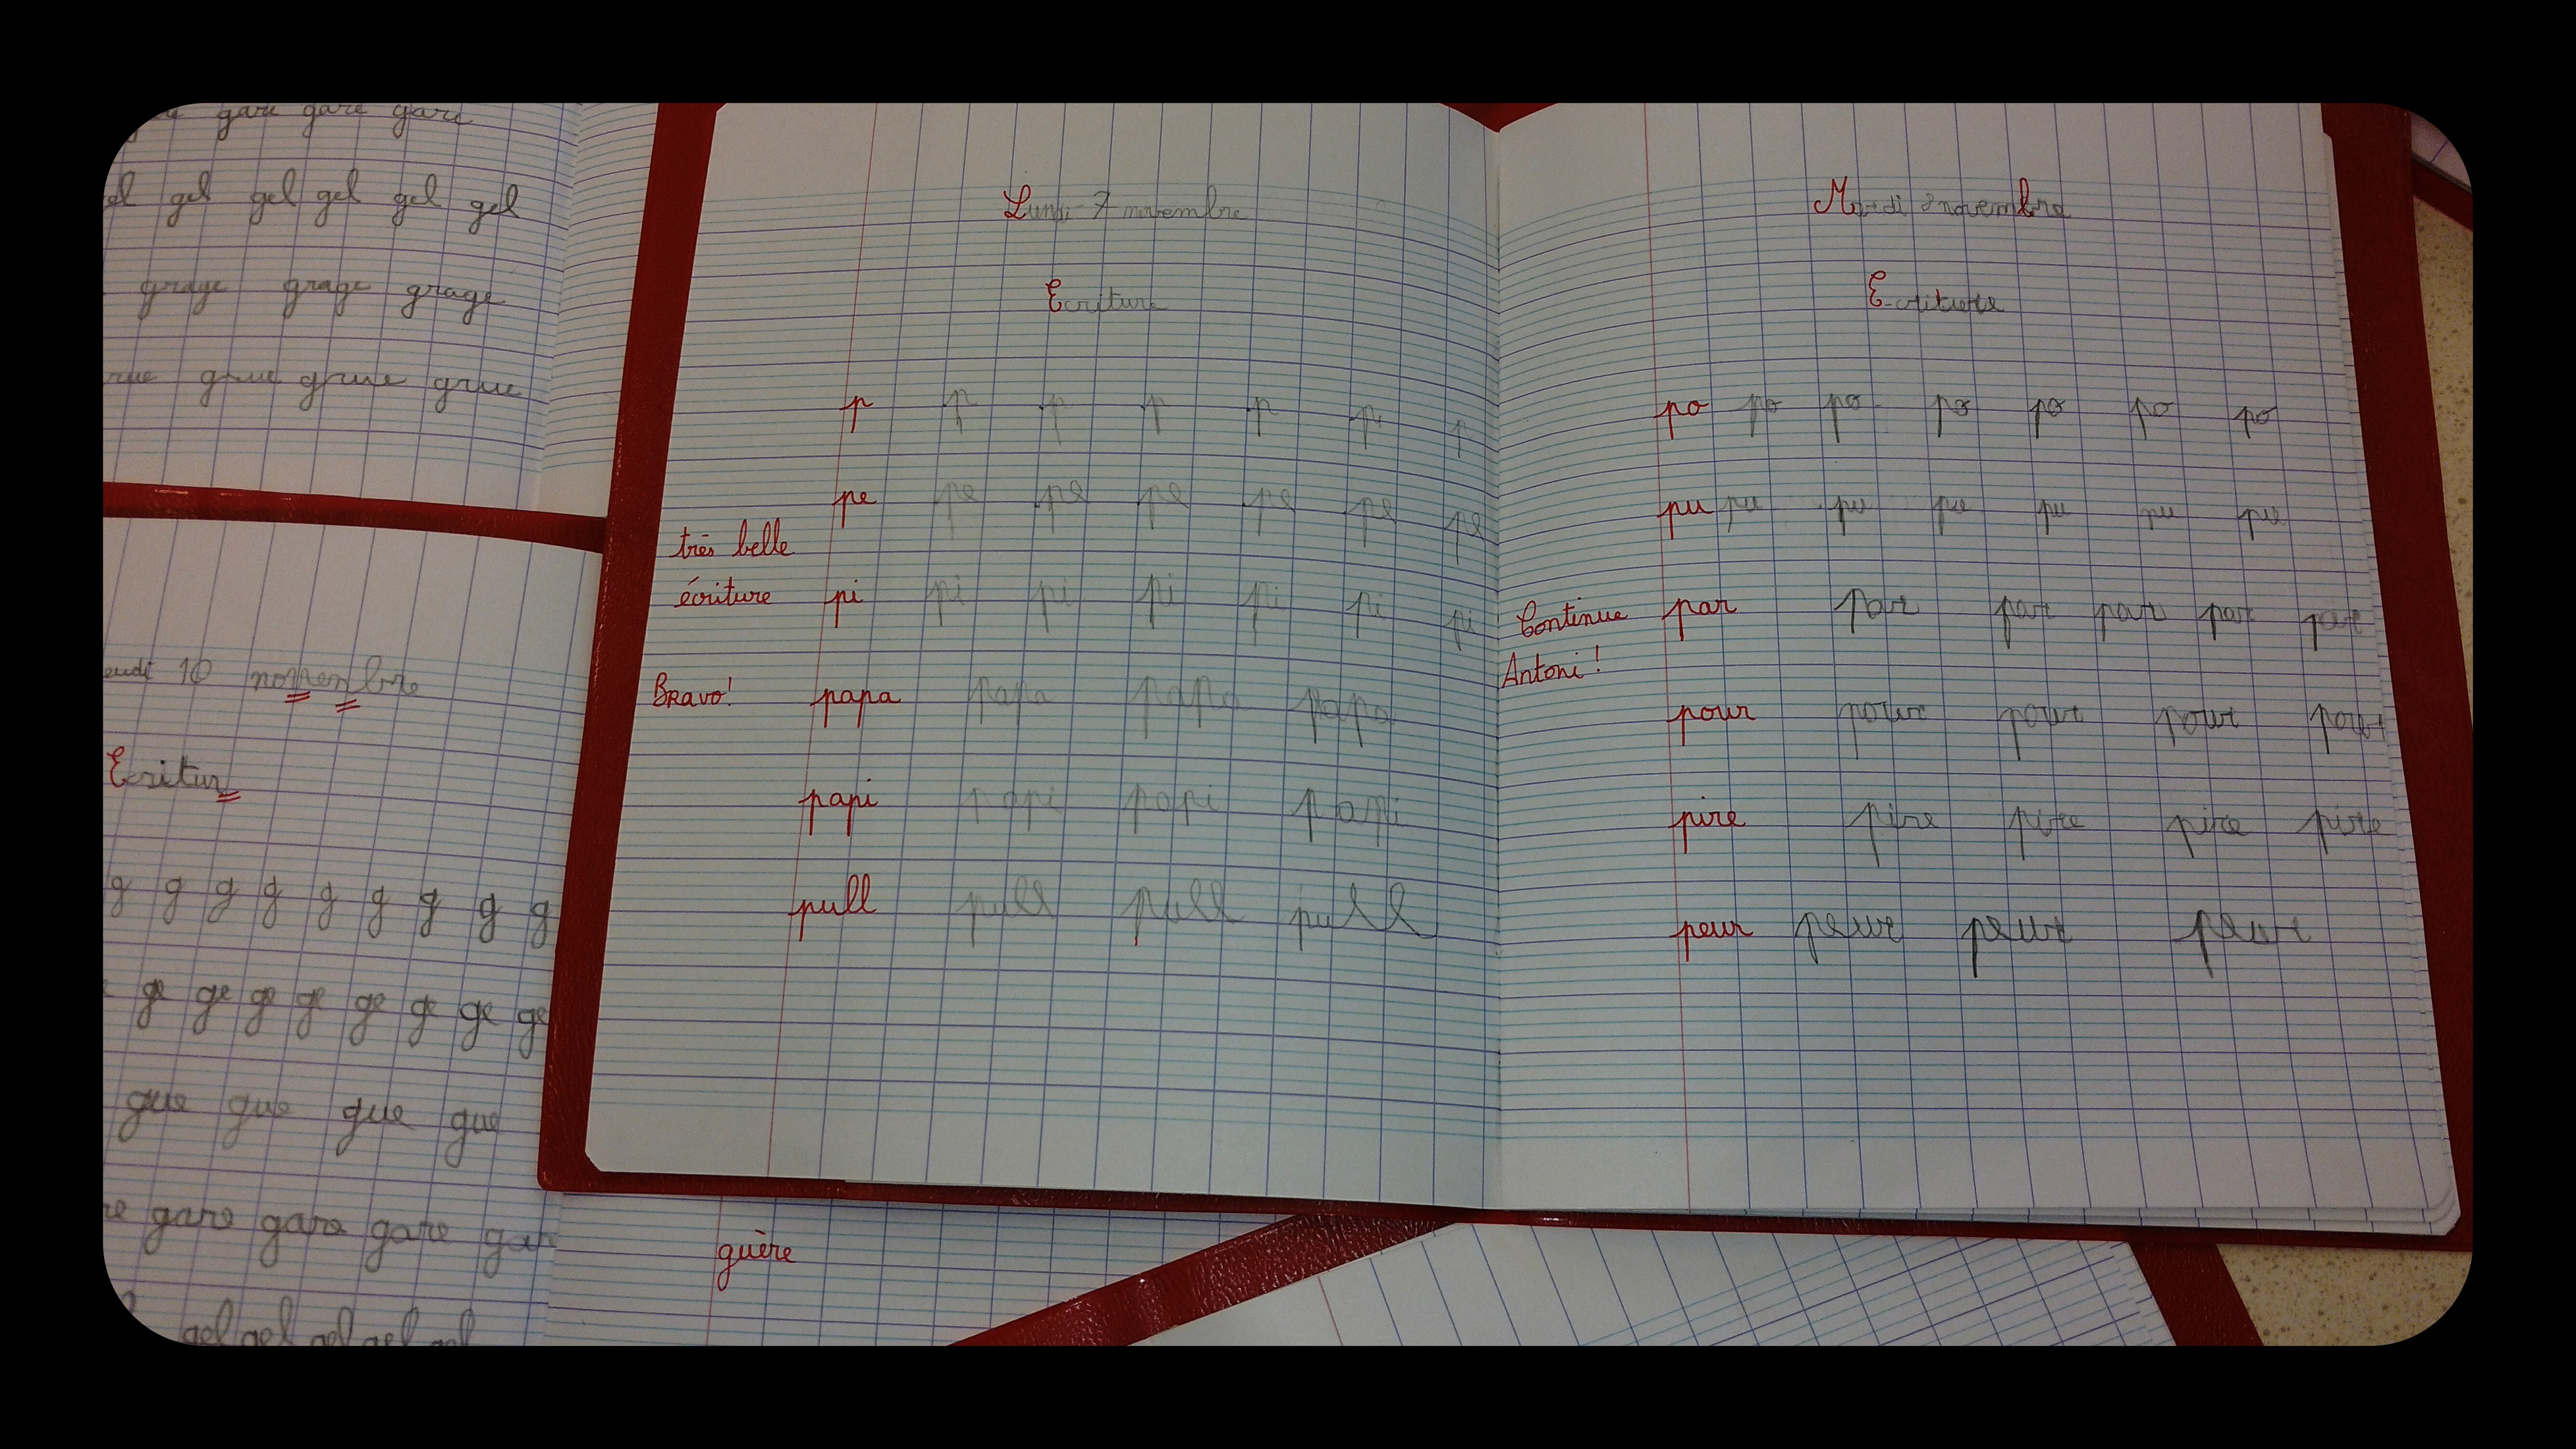 gare gare gare
gel gel gel gel gel
grage grage grage
grue grue grue
eudi 10 novembre
Ecritur
g g g g g g g g g
ge ge ge ge ge ge ge ge
gue gue gue gue
re gare gare gare gar
gel gel gel gel gel
guère
Lundi 7 novembre
Ecriture
p p p p p p p
pe pe pe pe pe pe pe
très belle
écriture pi pi pi pi pi pi pi
Bravo! papa papa papa papa
papi papi papi papi
pull pull pull pull
Mardi 8 novembre
Ecriture
po po po po po po po
pu pu pu pu pu pu pu
Continue par par par par par par
Antoni !
pour pour pour pour pour
pire pire pire pire pire
peur peur peur peur